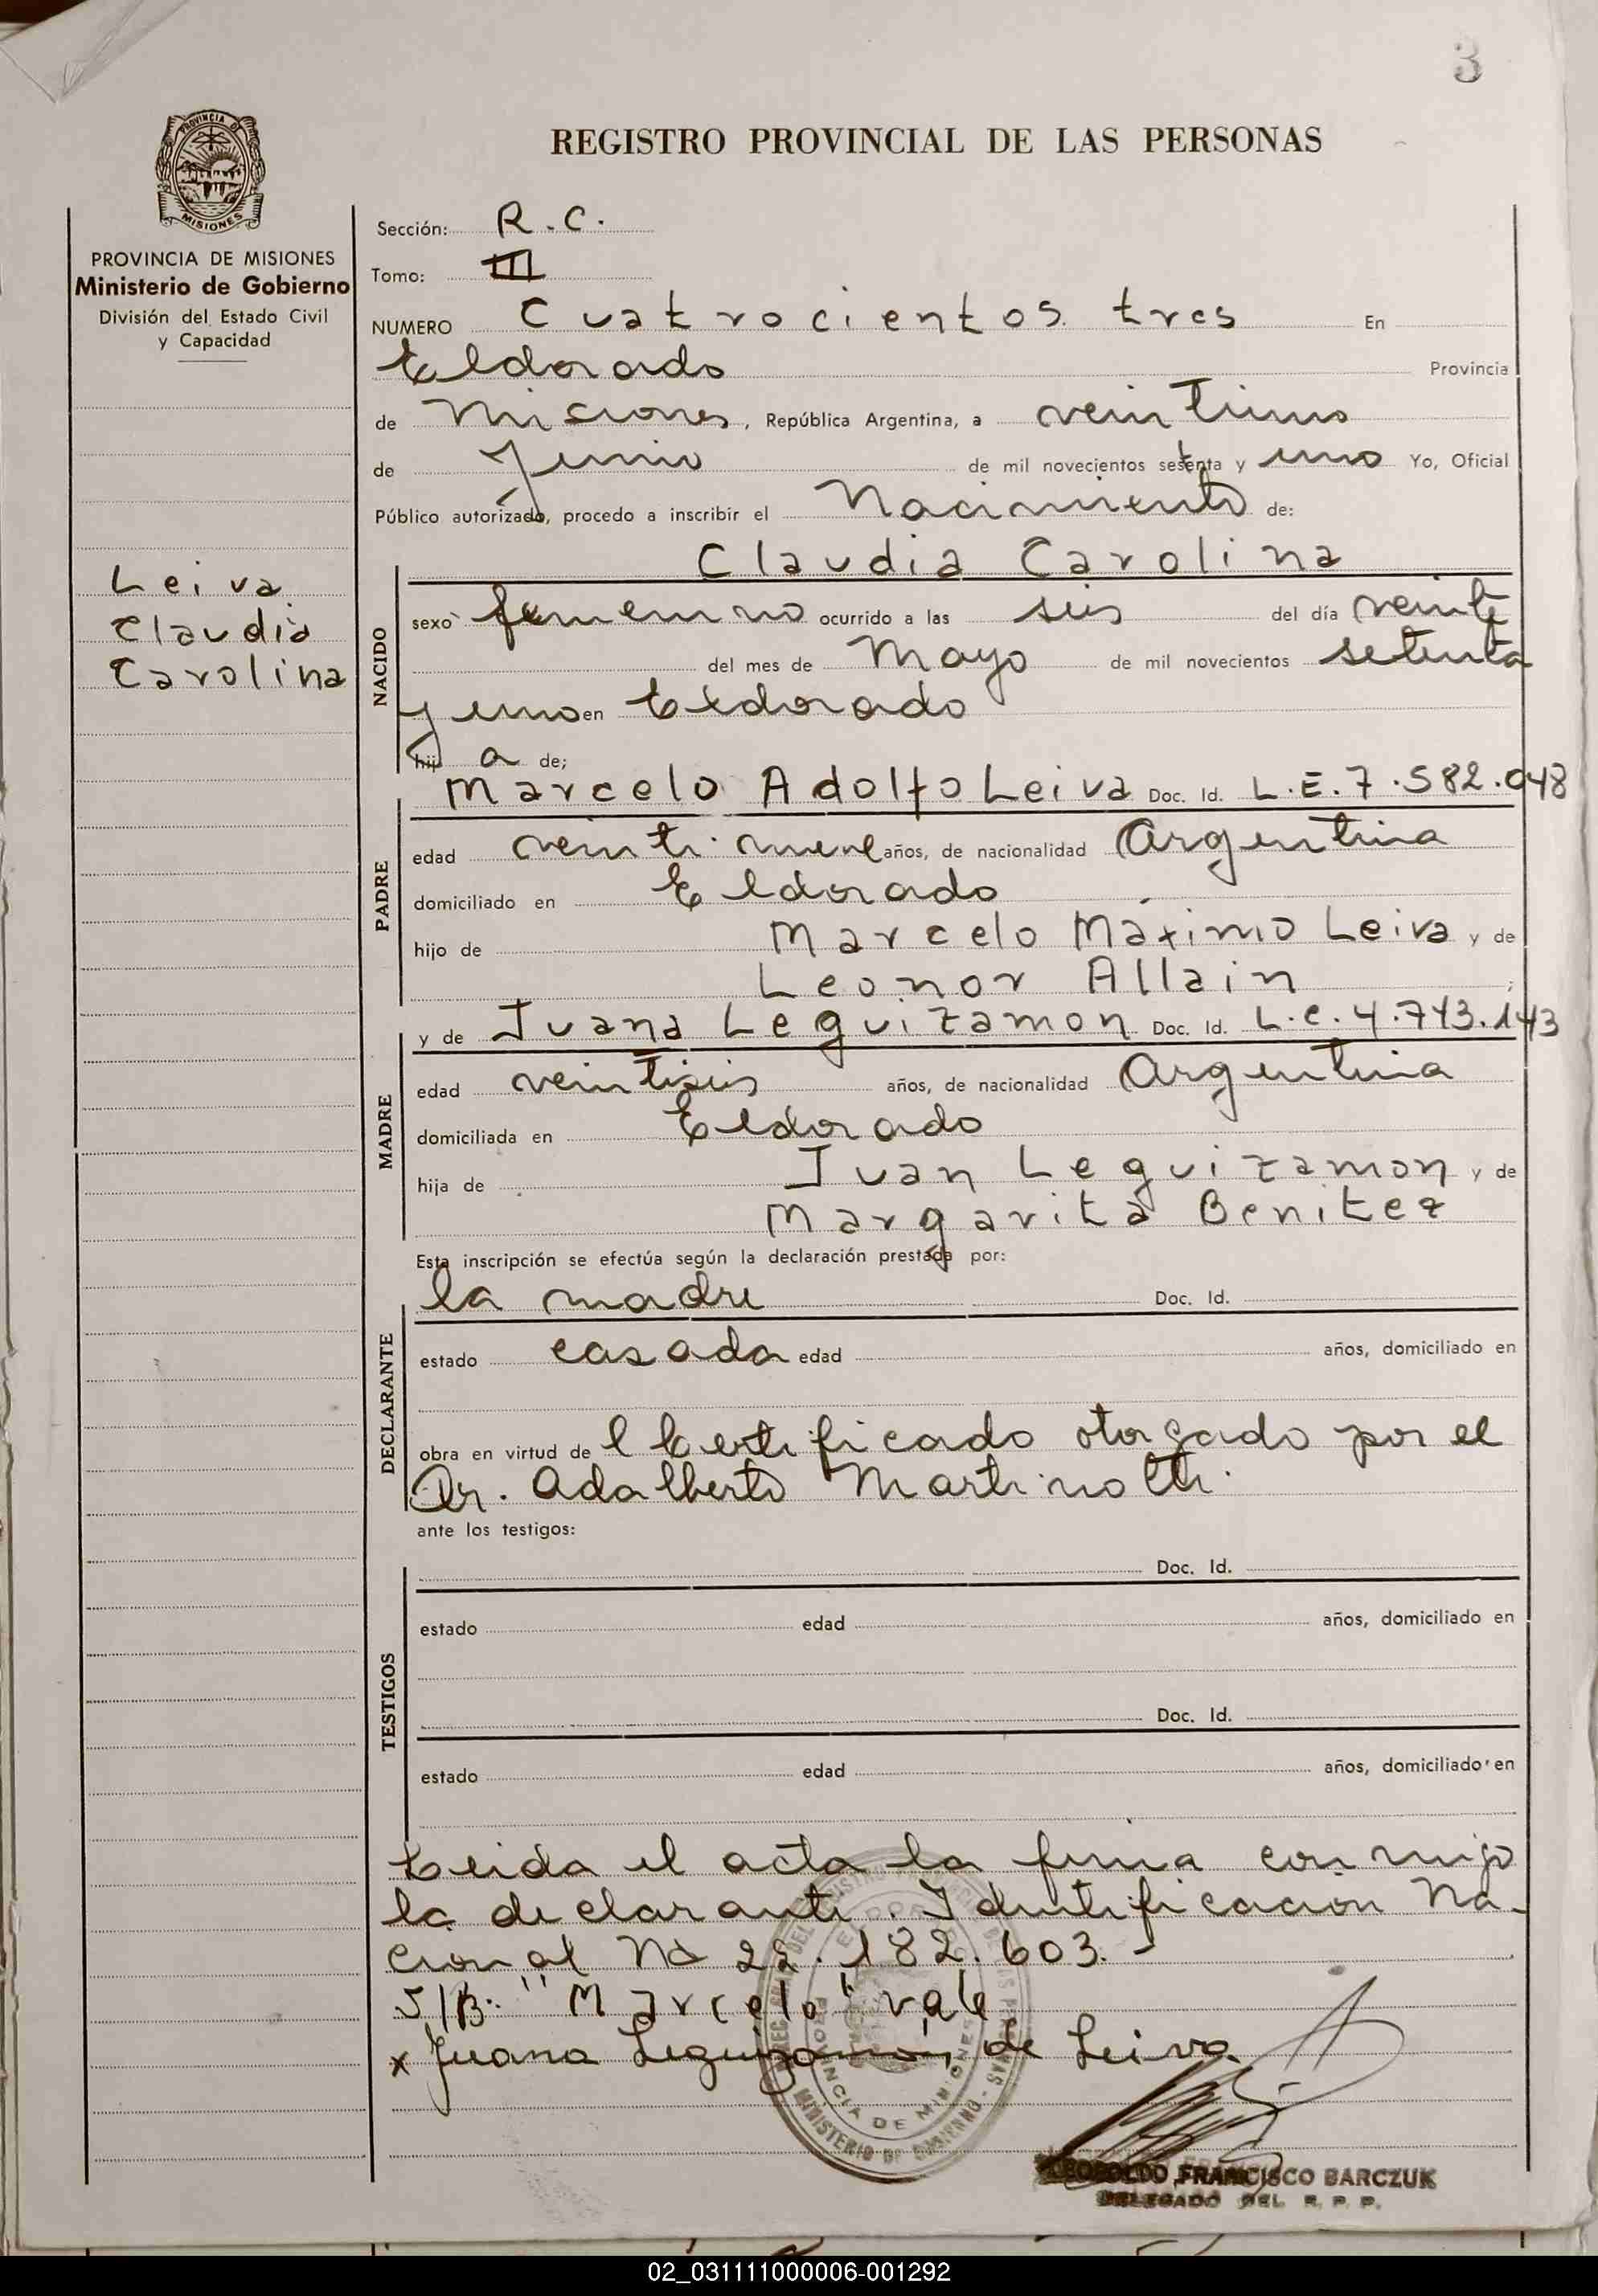 3
PROVINCIA DE
MISIONES
REGISTRO PROVINCIAL DE LAS PERSONAS
PROVINCIA DE MISIONES
Ministerio de Gobierno
División del Estado Civil
y Capacidad
Leiva
Claudia
Carolina
Sección: R.C.
Tomo: III
NUMERO Cuatrocientos tres En
Eldorado Provincia
de Misiones, República Argentina, a veintiuno
de Junio de mil novecientos setenta y uno Yo, Oficial
Público autorizado, procedo a inscribir el Nacimiento de:
Claudia Carolina
NACIDO
sexo femenino ocurrido a las seis del día veinte
del mes de Mayo de mil novecientos setenta
y uno en Eldorado
hij a de;
Marcelo Adolfo Leiva Doc. Id. L.E. 7.582.048
PADRE
edad veintinueve años, de nacionalidad Argentina
domiciliado en Eldorado
hijo de Marcelo Máximo Leiva y de
Leonor Allain ;
y de Juana Leguizamon Doc. Id. L.C. 4.743.143
MADRE
edad veintiseis años, de nacionalidad Argentina
domiciliada en Eldorado
hija de Juan Leguizamon y de
Margarita Benitez
Esta inscripción se efectúa según la declaración prestada por:
la madre Doc. Id.
DECLARANTE
estado casada edad años, domiciliado en
obra en virtud de l Certificado otorgado por el
Dr. Adalberto Martinotti.
ante los testigos:
Doc. Id.
TESTIGOS
estado edad años, domiciliado en
Doc. Id.
estado edad años, domiciliado en
Leida el acta la firma conmigo
la declarante. Identificación Na-
cional No 22.182.603.-
S/B: "Marcelo" vale
x Juana Leguizamón de Leiva
PROVINCIA DE MISIONES
MINISTERIO DE GOBIERNO
LEOPOLDO FRANCISCO BARCZUK
DELEGADO DEL R. P. P.
02_031111000006-001292